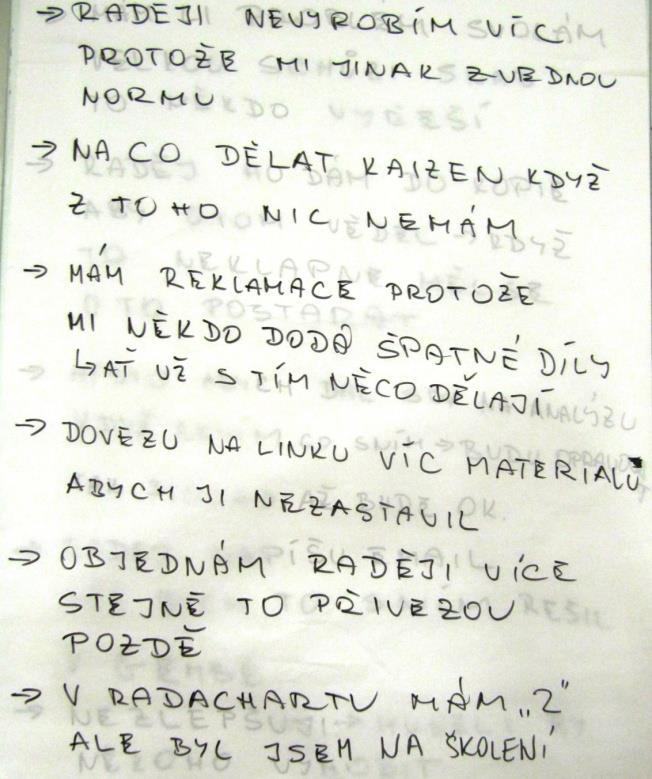 → RADĚJI NEVYROBÍM VÍC
PROTOŽE MI JINAK ZVEDNOU
NORMU
→ NA CO DĚLAT KAIZEN KDYŽ
Z TOHO NIC NEMÁM
→ MÁM REKLAMACE PROTOŽE
MI NĚKDO DODÁ ŠPATNÉ DÍLY
↳ AŤ UŽ S TÍM NĚCO DĚLAJÍ
→ DOVEZU NA LINKU VÍC MATERIALŮ
ABYCH JI NEZASTAVIL
→ OBJEDNÁM RADĚJI VÍCE
STEJNĚ TO PŘIVEZOU
POZDĚ
→ V RADACHARTU MÁM „2"
ALE BYL JSEM NA ŠKOLENÍ